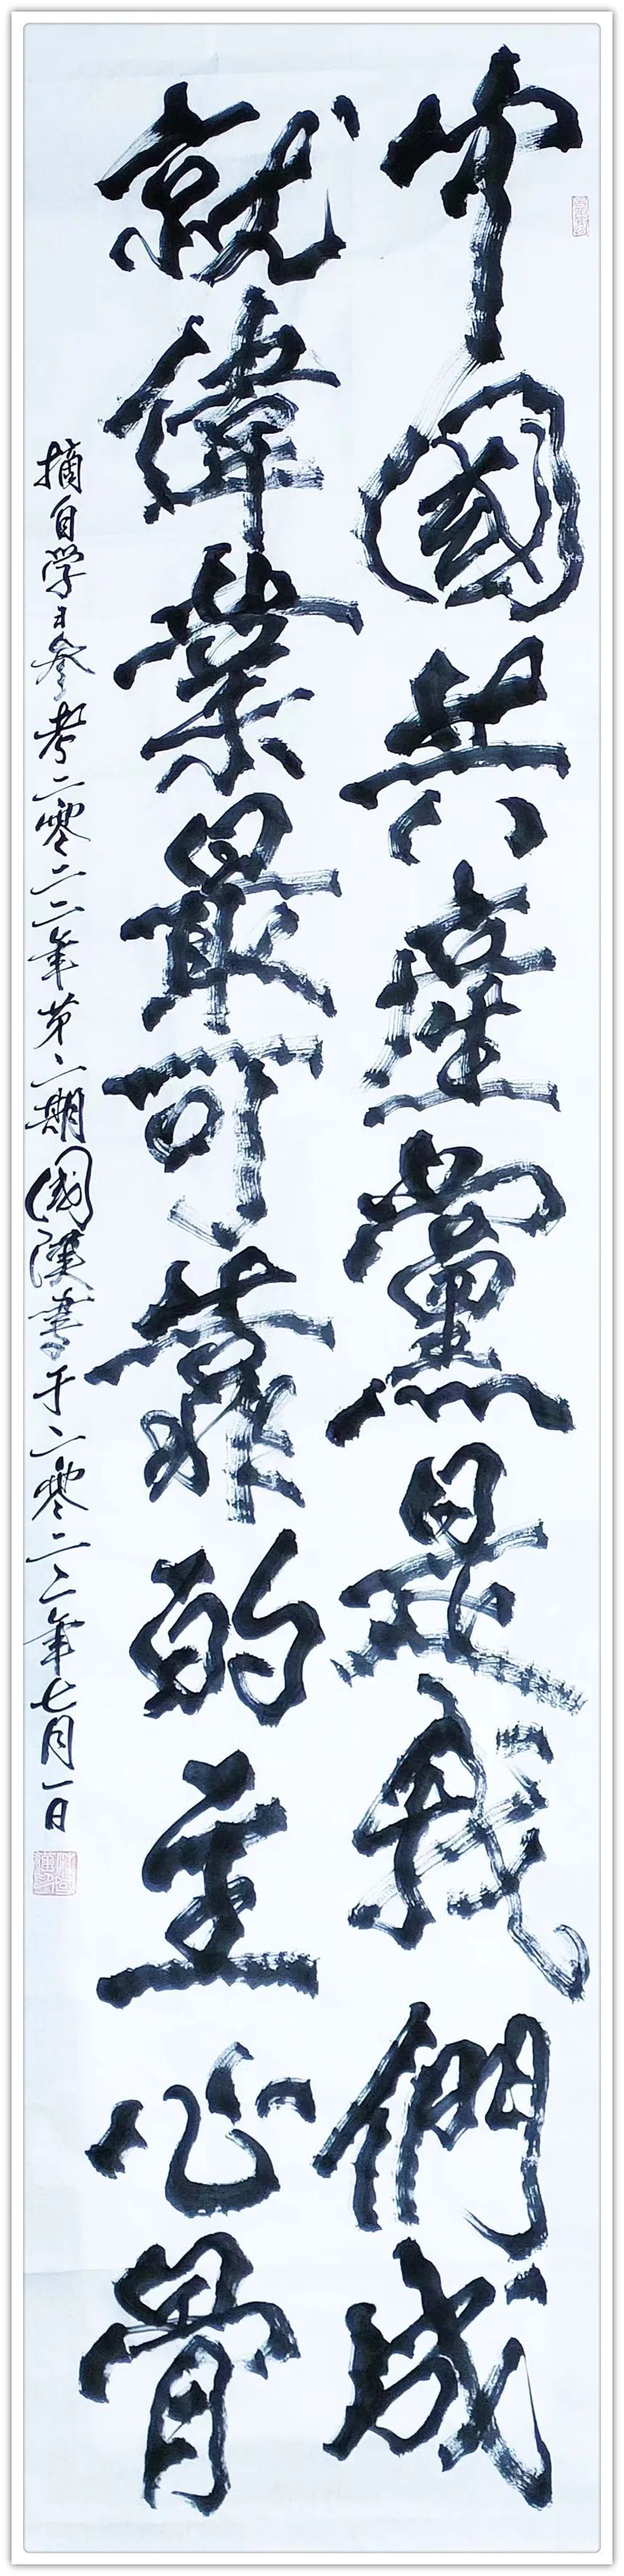 中國共產黨是我們成
就偉業最可靠的主心骨
摘自学习参考二零二二年第二期國漢書于二零二二年七月一日